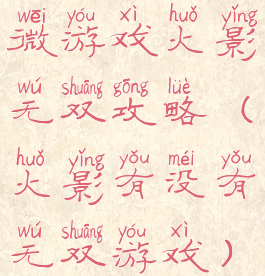 wēi yóu xì huǒ yǐng
微游戏火影
wú shuāng gōng lüè
无双攻略（
huǒ yǐng yǒu méi yǒu
火影有没有
wú shuāng yóu xì
无双游戏）